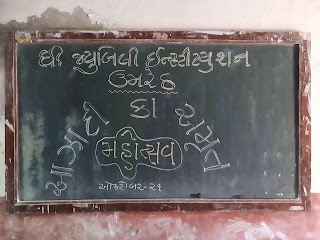 ધી જ્યુબિલી ઈન્સ્ટીટ્યુશન
ઉમરેઠ
આઝાદી કા અમૃત
મહોત્સવ
ઓક્ટોબર-૨૧